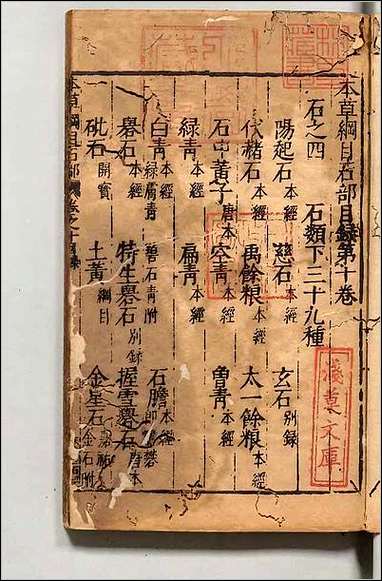 本草綱目石部目録第十卷
石之四 石類下三十九種
陽起石本經 慈石本經 玄石別録
代赭石本經 禹餘粮本經 太一餘粮本經
石中黃子唐本 空青本經 曾青本經
緑青本經 扁青本經 石膽本經即膽礬
白青本經緑膚青 碧石青附
礜石本經 特生礜石別録 握雪礜石唐本
砒石開寶 土黃綱目 金星石嘉祐金石附
本草綱目石部 卷之十目録
淺草文庫